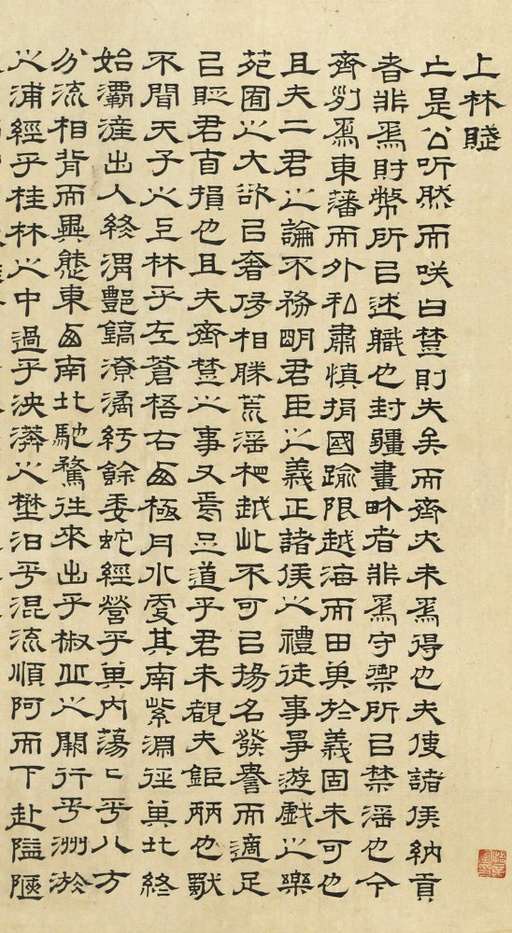 上林賦
亡是公听然而咲曰楚則失矣而齊亦未爲得也夫使諸侯納貢
者非爲財幣所以述職也封疆畫畍者非爲守禦所以禁淫也今
齊列爲東藩而外私肅慎捐國踰限越海而田其於義固未可也
且夫二君之論不務明君臣之義正諸侯之禮徒事爭遊戲之樂
苑囿之大欲以奢侈相勝荒淫相越此不可以揚名發譽而適足
以貶君自損也且夫齊楚之事又焉足道乎君未覩夫鉅麗也獨
不聞天子之上林乎左蒼梧右西極丹水更其南紫淵徑其北終
始灞滻出入渭酆鎬潦潏紆餘委蛇經營乎其內蕩〻乎八方
分流相背而異態東西南北馳騖往來出乎椒丘之闕行乎洲淤
之浦經乎桂林之中過乎泱漭之壄汩乎混流順阿而下赴隘陿